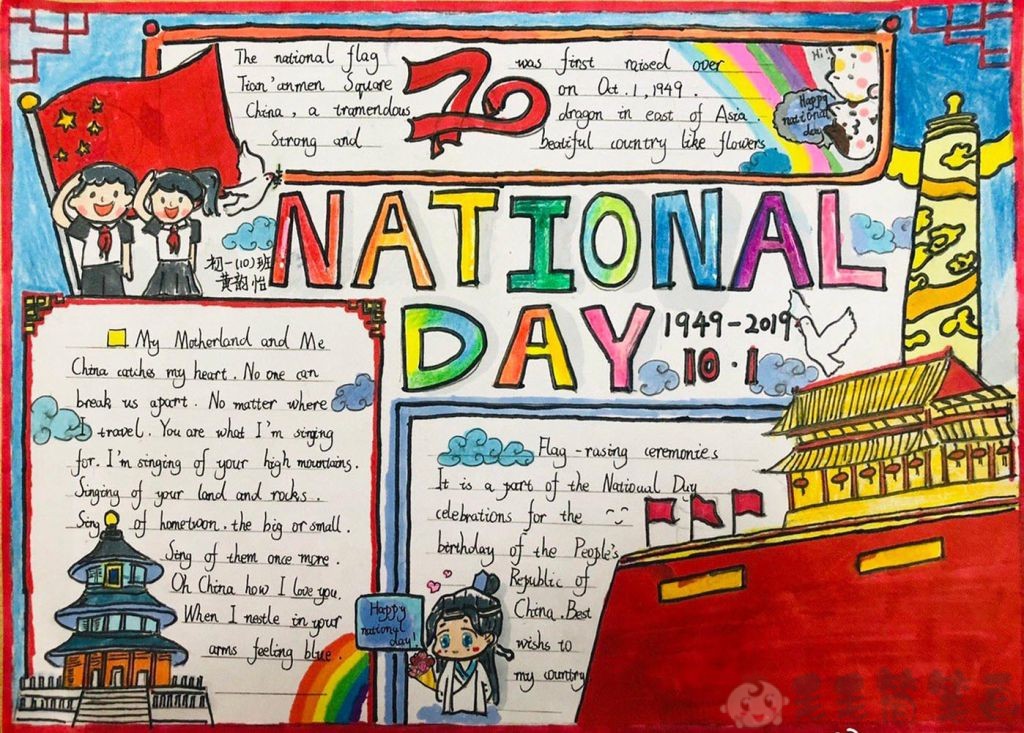 The national flag was first raised over
Tian'anmen Square on Oct.1,1949.
China, a tramendous dragon in east of Asia.
Strong and beatiful country like flowers
70
Hi!
Happy
national
day
NATIONAL
DAY
初一(10)班
黄韵怡
1949-2019
10·1
My Motherland and Me
China catches my heart. No one can
break us apart. No matter where
I travel. You are what I'm singing
for. I'm singing of your high mountains.
Singing of your land and rocks.
Sing of hometwon. the big or small.
Sing of them once more.
Oh China how I love you.
When I nestle in your
arms feeling blue.
Flag-rasing ceremonies
It is a part of the National Day
celebrations for the
birthday of the People's
Republic of
China. Best
wishs to
my country
Happy
national
day!